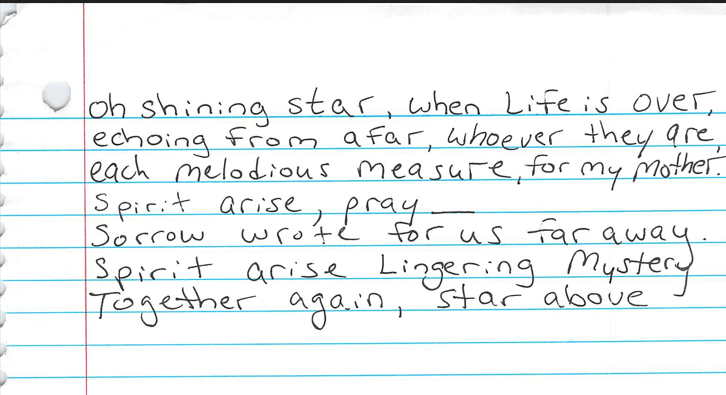 oh shining star, when Life is over,
echoing from afar, whoever they are,
each melodious measure, for my Mother.
Spirit arise, pray __
Sorrow wrote for us far away.
Spirit arise Lingering Mystery
Together again, star above